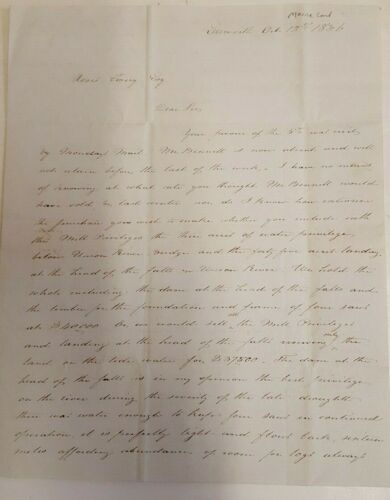 Maine Land
Ellsworth Oct. 13th 1846
Esq
Dear Sir,
Your favour of the 5th was recd
by Monday's Mail. Mr Bennell is now absent and will
not return before the last of the week, I have no means
of knowing at what rate you thought Mr Bennell would
have sold last winter nor do I know how extensive
the purchase you wish to make whether you include with
the Mill Privileges the three acres of water privilege
below Union River Bridge and the forty five acres landing
at the head of the falls on Union River. We hold the
whole including the dam at the head of the falls and
the timber for the foundation and frame of four saws
at $40000 Or we would sell all the Mill Privileges
and landing at the head of the falls reserving only the
land on the tide water for $37500. The dam at the
head of the falls is in my opinion the best Privilege
on the river during the severity of the late drought
there was water enough to keep four saws in continued
operation, it is perfectly tight and flows back sixteen
miles affording abundance of room for logs always